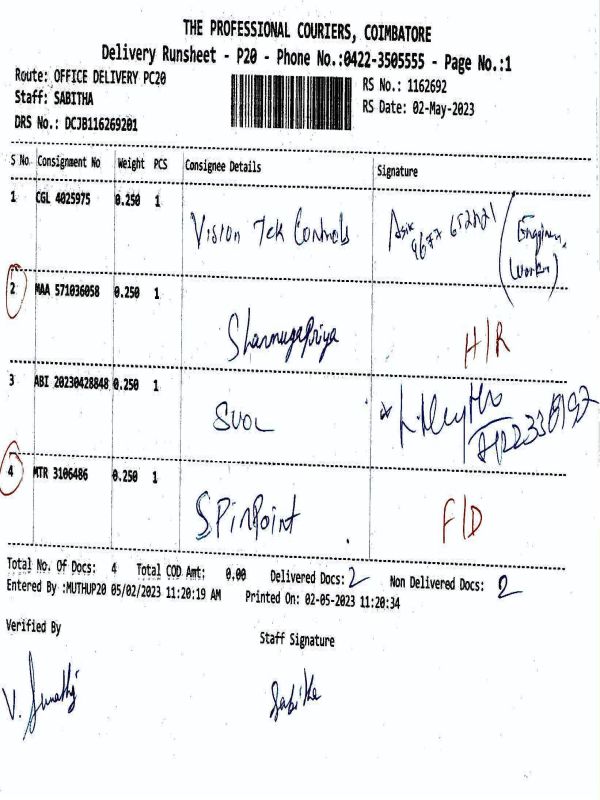 THE PROFESSIONAL COURIERS, COIMBATORE
Delivery Runsheet - P20 - Phone No.:0422-3505555 - Page No.:1
Route: OFFICE DELIVERY PC20
RS No.: 1162692
Staff: SABITHA
RS Date: 02-May-2023
DRS No.: DCJB116269201
S No. Consignment No Weight PCS Consignee Details Signature
1 CGL 4025975 0.250 1 Vision Tek Controls
2 MAA 571036058 0.250 1 Shanmugapriya H/R
3 ABI 20230428848 0.250 1 SUOL
4 MTR 3106486 0.250 1 SPinPoint F/D
Total No. Of Docs: 4 Total COD Amt: 0.00 Delivered Docs: 2 Non Delivered Docs: 2
Entered By :MUTHUP20 05/02/2023 11:20:19 AM Printed On: 02-05-2023 11:20:34
Verified By Staff Signature
Sabitha